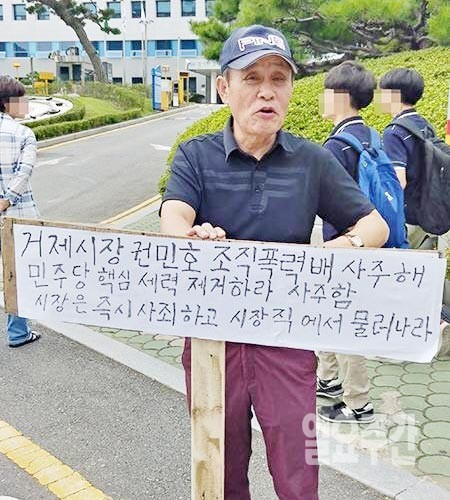 PING
거제시장 권민호 조직폭력배 사주해
민주당 핵심 세력 제거하라 사주함
시장은 즉시 사죄하고 시장직에서 물러나라
일요주간